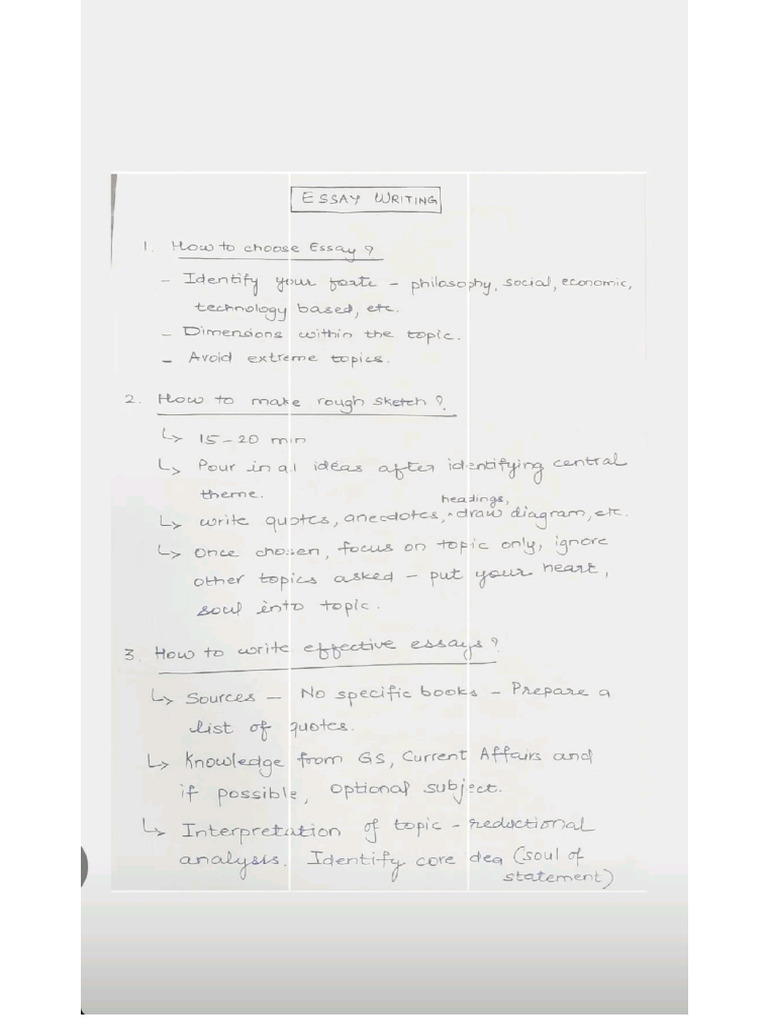 ESSAY WRITING
1. How to choose Essay?
- Identify your forte - philosophy, social, economic,
technology based, etc.
- Dimensions within the topic.
- Avoid extreme topics.
2. How to make rough sketch?
↳ 15-20 min
↳ Pour in all ideas after identifying central
theme.
headings,
↳ write quotes, anecdotes, ^ draw diagram, etc.
↳ once chosen, focus on topic only, ignore
other topics asked - put your heart,
soul into topic.
3. How to write effective essays?
↳ Sources - No specific books - Prepare a
list of quotes.
↳ Knowledge from GS, Current Affairs and
if possible, Optional subject.
↳ Interpretation of topic - reductional
analysis. Identify core dea (soul of
statement)